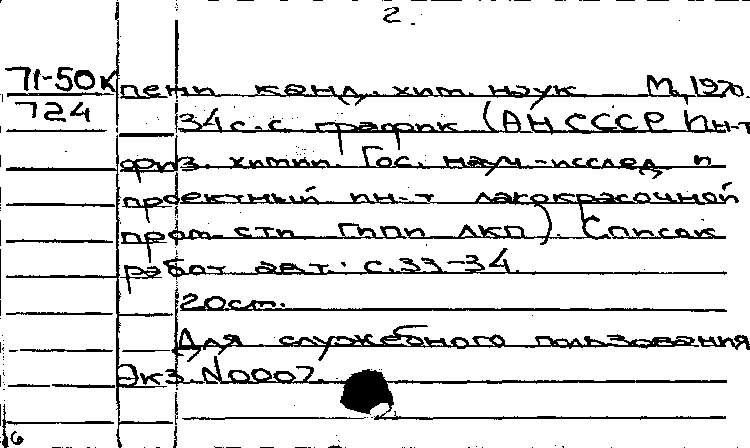 2.
71-50К пени канд. хим. наук М., 1970.
724 34 с. с график (АН СССР Ин-т
физ. химии. Гос. науч.-исслед и
проектный ин-т лакокрасочной
пром-сти ГИПИ ЛКП). Список
работ авт.: с. 33-34.
20 см.
Для служебного пользования
Экз. N0007.